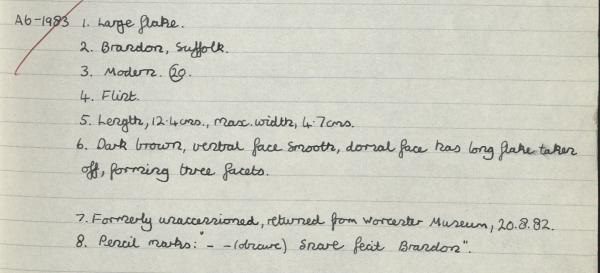 A6-1983 1. Large flake.
2. Brandon, Suffolk.
3. Modern. 20.
4. Flint.
5. Length, 12.4cms., max. width, 4.7cms.
6. Dark brown, ventral face smooth, dorsal face has long flake taken
off, forming three facets.
7. Formerly unaccessioned, returned from Worcester Museum, 20.8.82.
8. Pencil marks: "- -(drawe) Snare fecit Brandon".